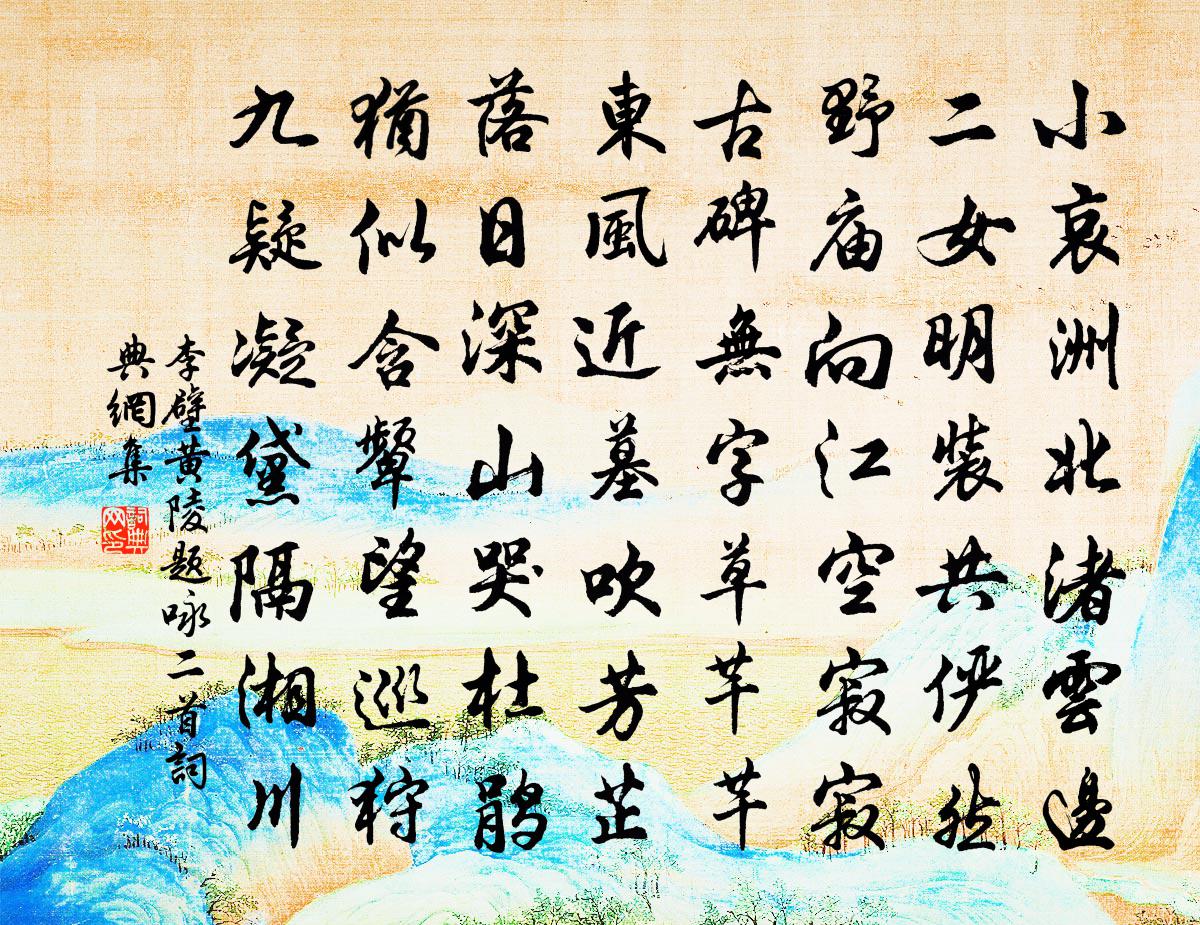 小哀洲北渚雲邊
二女明裝共俨然
野庙向江空寂寂
古碑無字草芊芊
東風近墓吹芳芷
落日深山哭杜鹃
猶似含颦望巡狩
九疑凝黛隔湘川
李壁黄陵題咏二首詞
典網集
詞典
网印